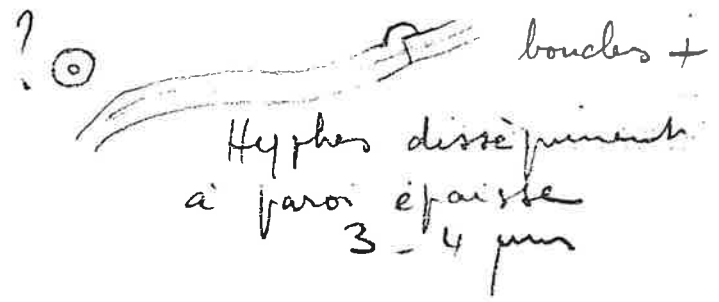 ?
boucles +
Hyphes dissépiment
à paroi épaisse
3-4 µm